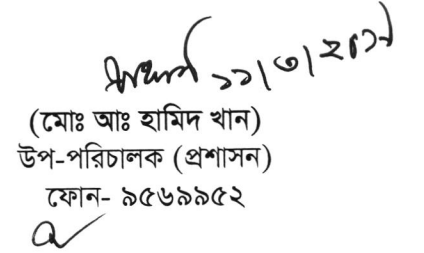 ১১/৩/২০১৯
(মোঃ আঃ হামিদ খান)
উপ-পরিচালক (প্রশাসন)
ফোন- ৯৫৬৯৯৫২